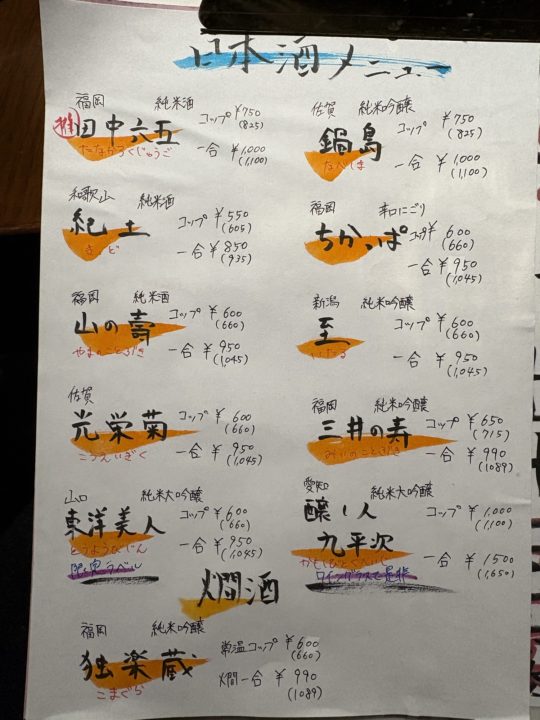 日本酒メニュー
福岡 純米酒
推 田中六五
たなかろくじゅうご
コップ ¥750
(825)
一合 ¥1,000
(1,100)
佐賀 純米吟醸
鍋島
なべしま
コップ ¥750
(825)
一合 ¥1,000
(1,100)
和歌山 純米酒
紀土
きっど
コップ ¥550
(605)
一合 ¥850
(935)
福岡 辛口にごり
ちかっぱ
コップ ¥600
(660)
一合 ¥950
(1,045)
福岡 純米酒
山の壽
やまのことぶき
コップ ¥600
(660)
一合 ¥950
(1,045)
新潟 純米吟醸
至
いたる
コップ ¥600
(660)
一合 ¥950
(1,045)
佐賀
光栄菊
こうえいぎく
コップ ¥600
(660)
一合 ¥950
(1,045)
福岡 純米吟醸
三井の寿
みいのことぶき
コップ ¥650
(715)
一合 ¥990
(1089)
山口 純米大吟醸
東洋美人
とうようびじん
コップ ¥600
(660)
一合 ¥950
(1,045)
愛知 純米大吟醸
醸し人
九平次
かもしびとくへいじ
ワイングラスで是非
コップ ¥1,000
(1,100)
一合 ¥1500
(1,650)
燗酒
福岡 純米吟醸
独楽蔵
こまぐら
常温コップ ¥600
(660)
燗一合 ¥990
(1089)